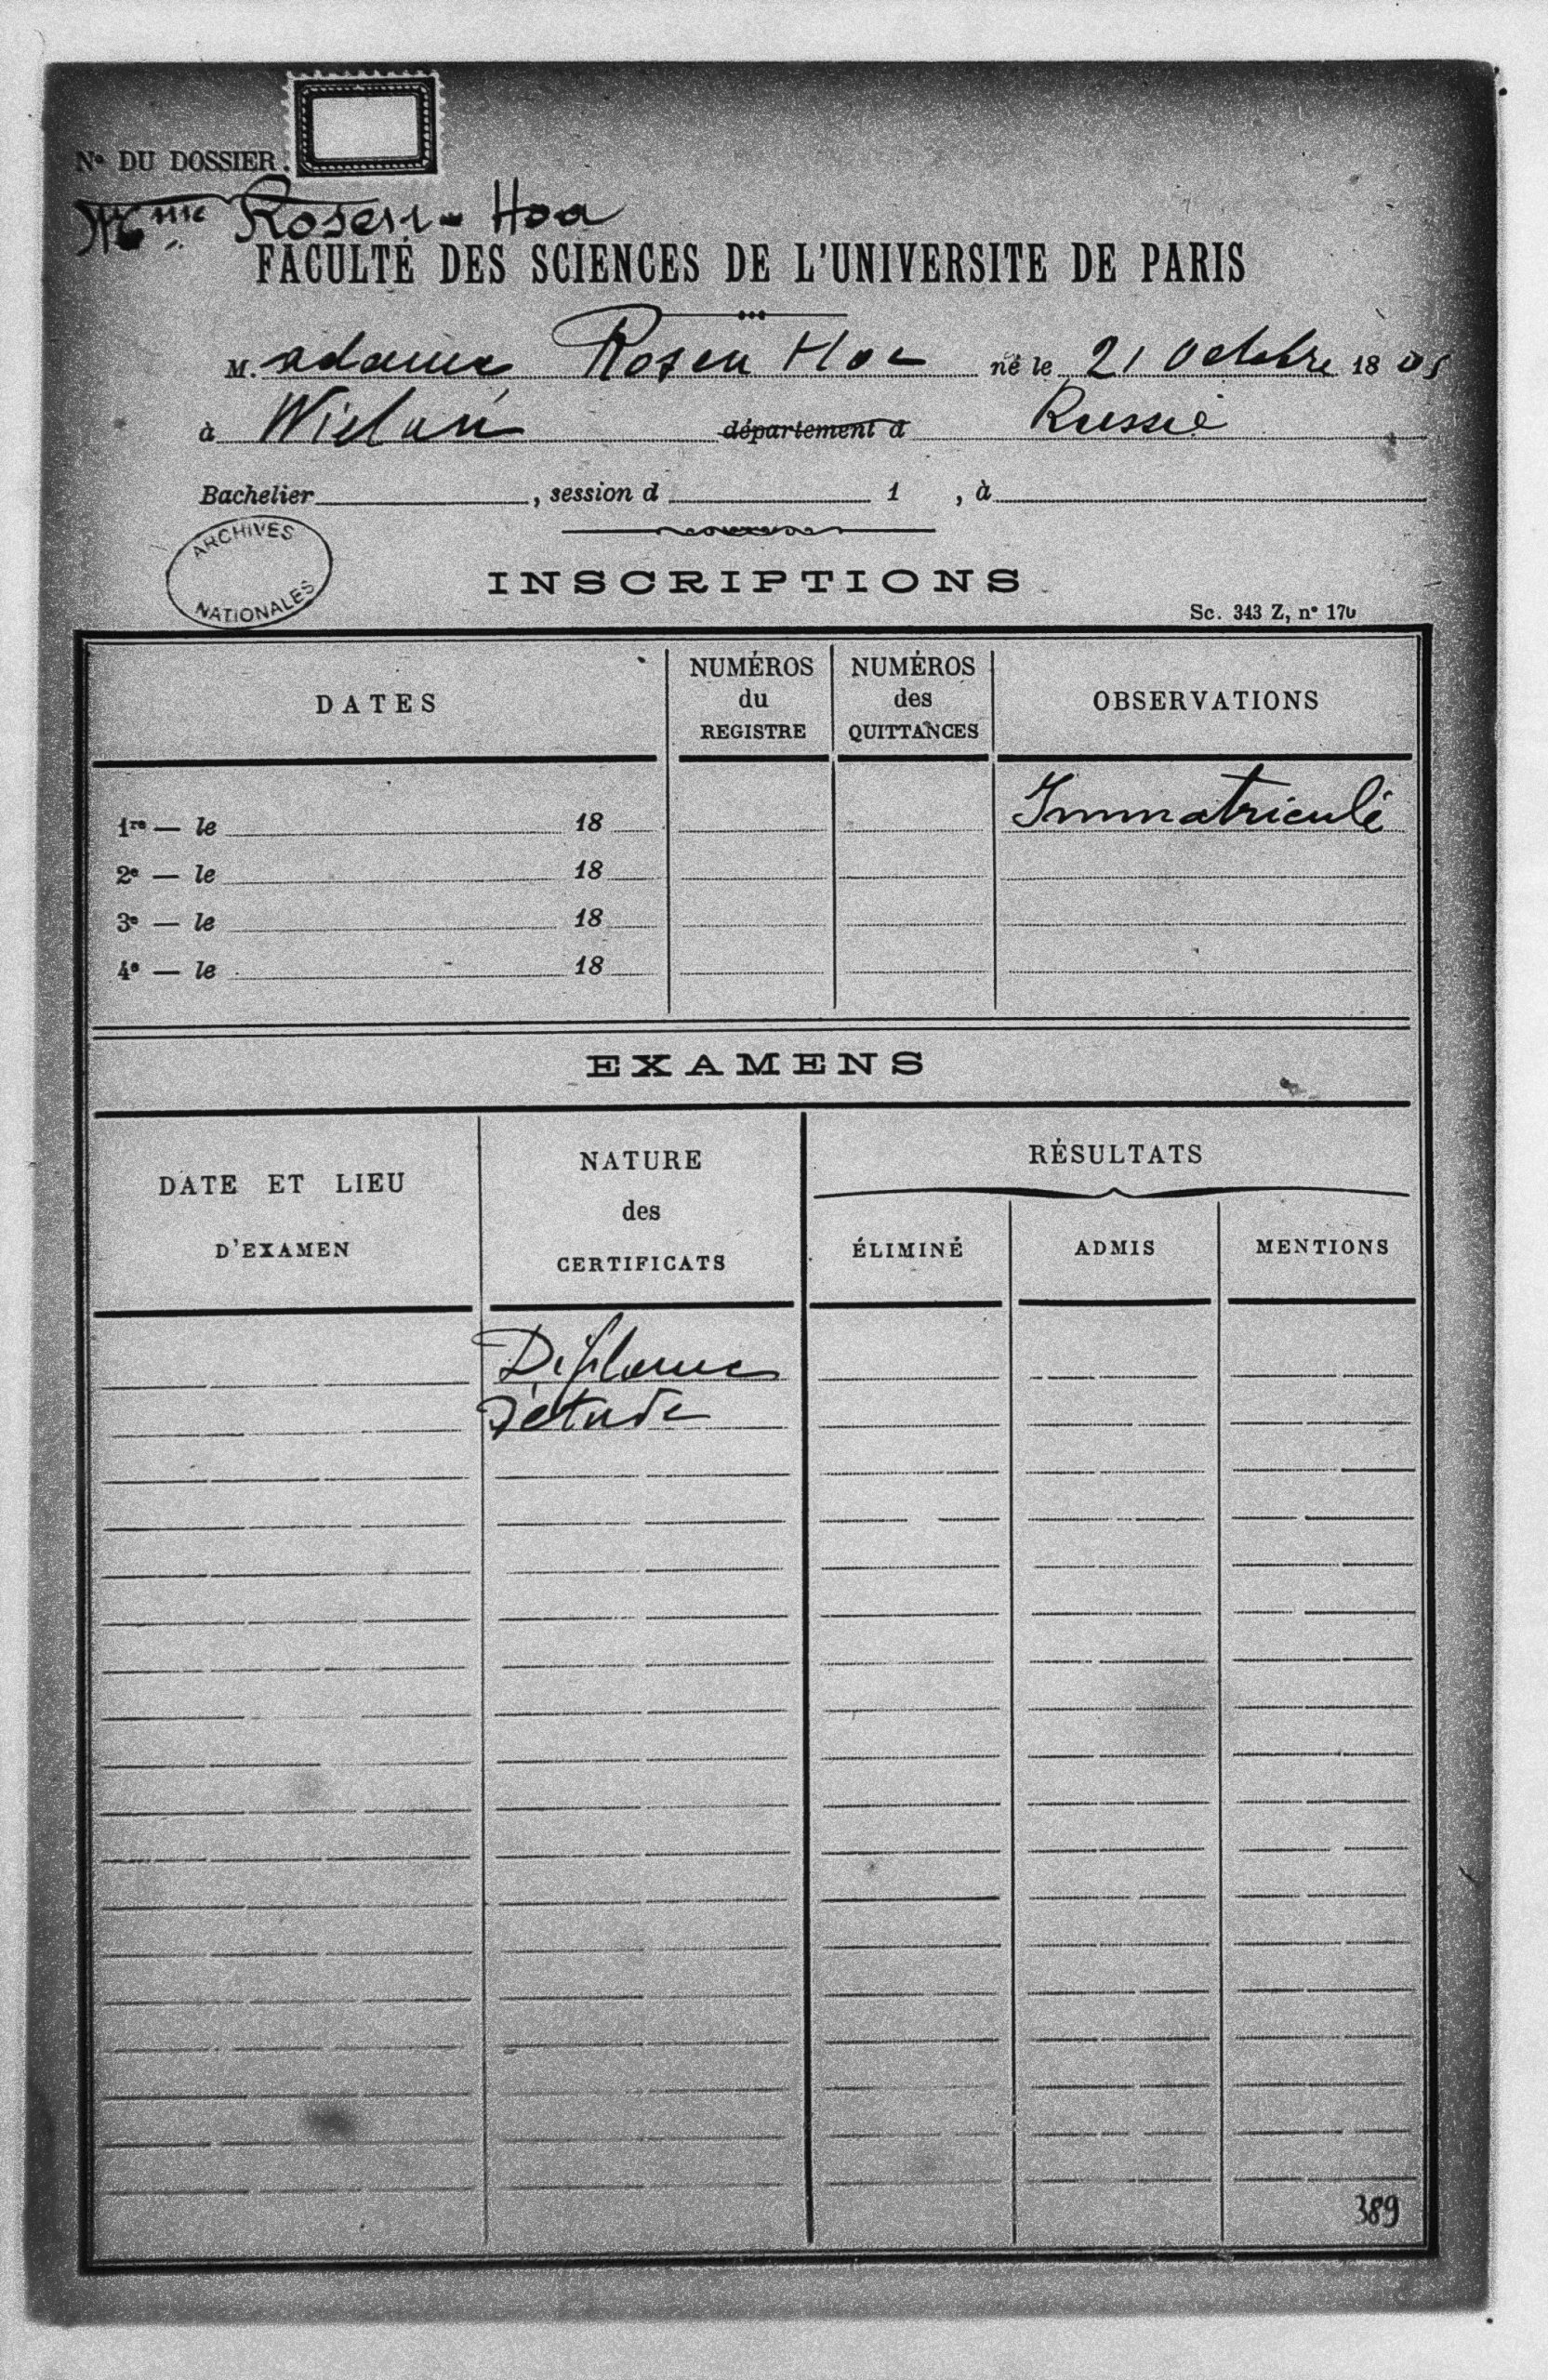 N° DU DOSSIER.
Mme Rosen-Hoa
FACULTÉ DES SCIENCES DE L'UNIVERSITE DE PARIS
M. adame Rosen Hoa né le 21 Octobre 18 05
à Wieluń département d Russie
Bachelier , session d 1 , à
ARCHIVES
NATIONALES
INSCRIPTIONS
Sc. 343 Z, n° 170
DATES
NUMÉROS du REGISTRE
NUMÉROS des QUITTANCES
OBSERVATIONS
1re — le 18 Immatriculé
2e — le 18
3e — le 18
4e — le 18
EXAMENS
DATE ET LIEU D'EXAMEN
NATURE des CERTIFICATS
RÉSULTATS
ÉLIMINÉ ADMIS MENTIONS
Diplome
d'étude
389